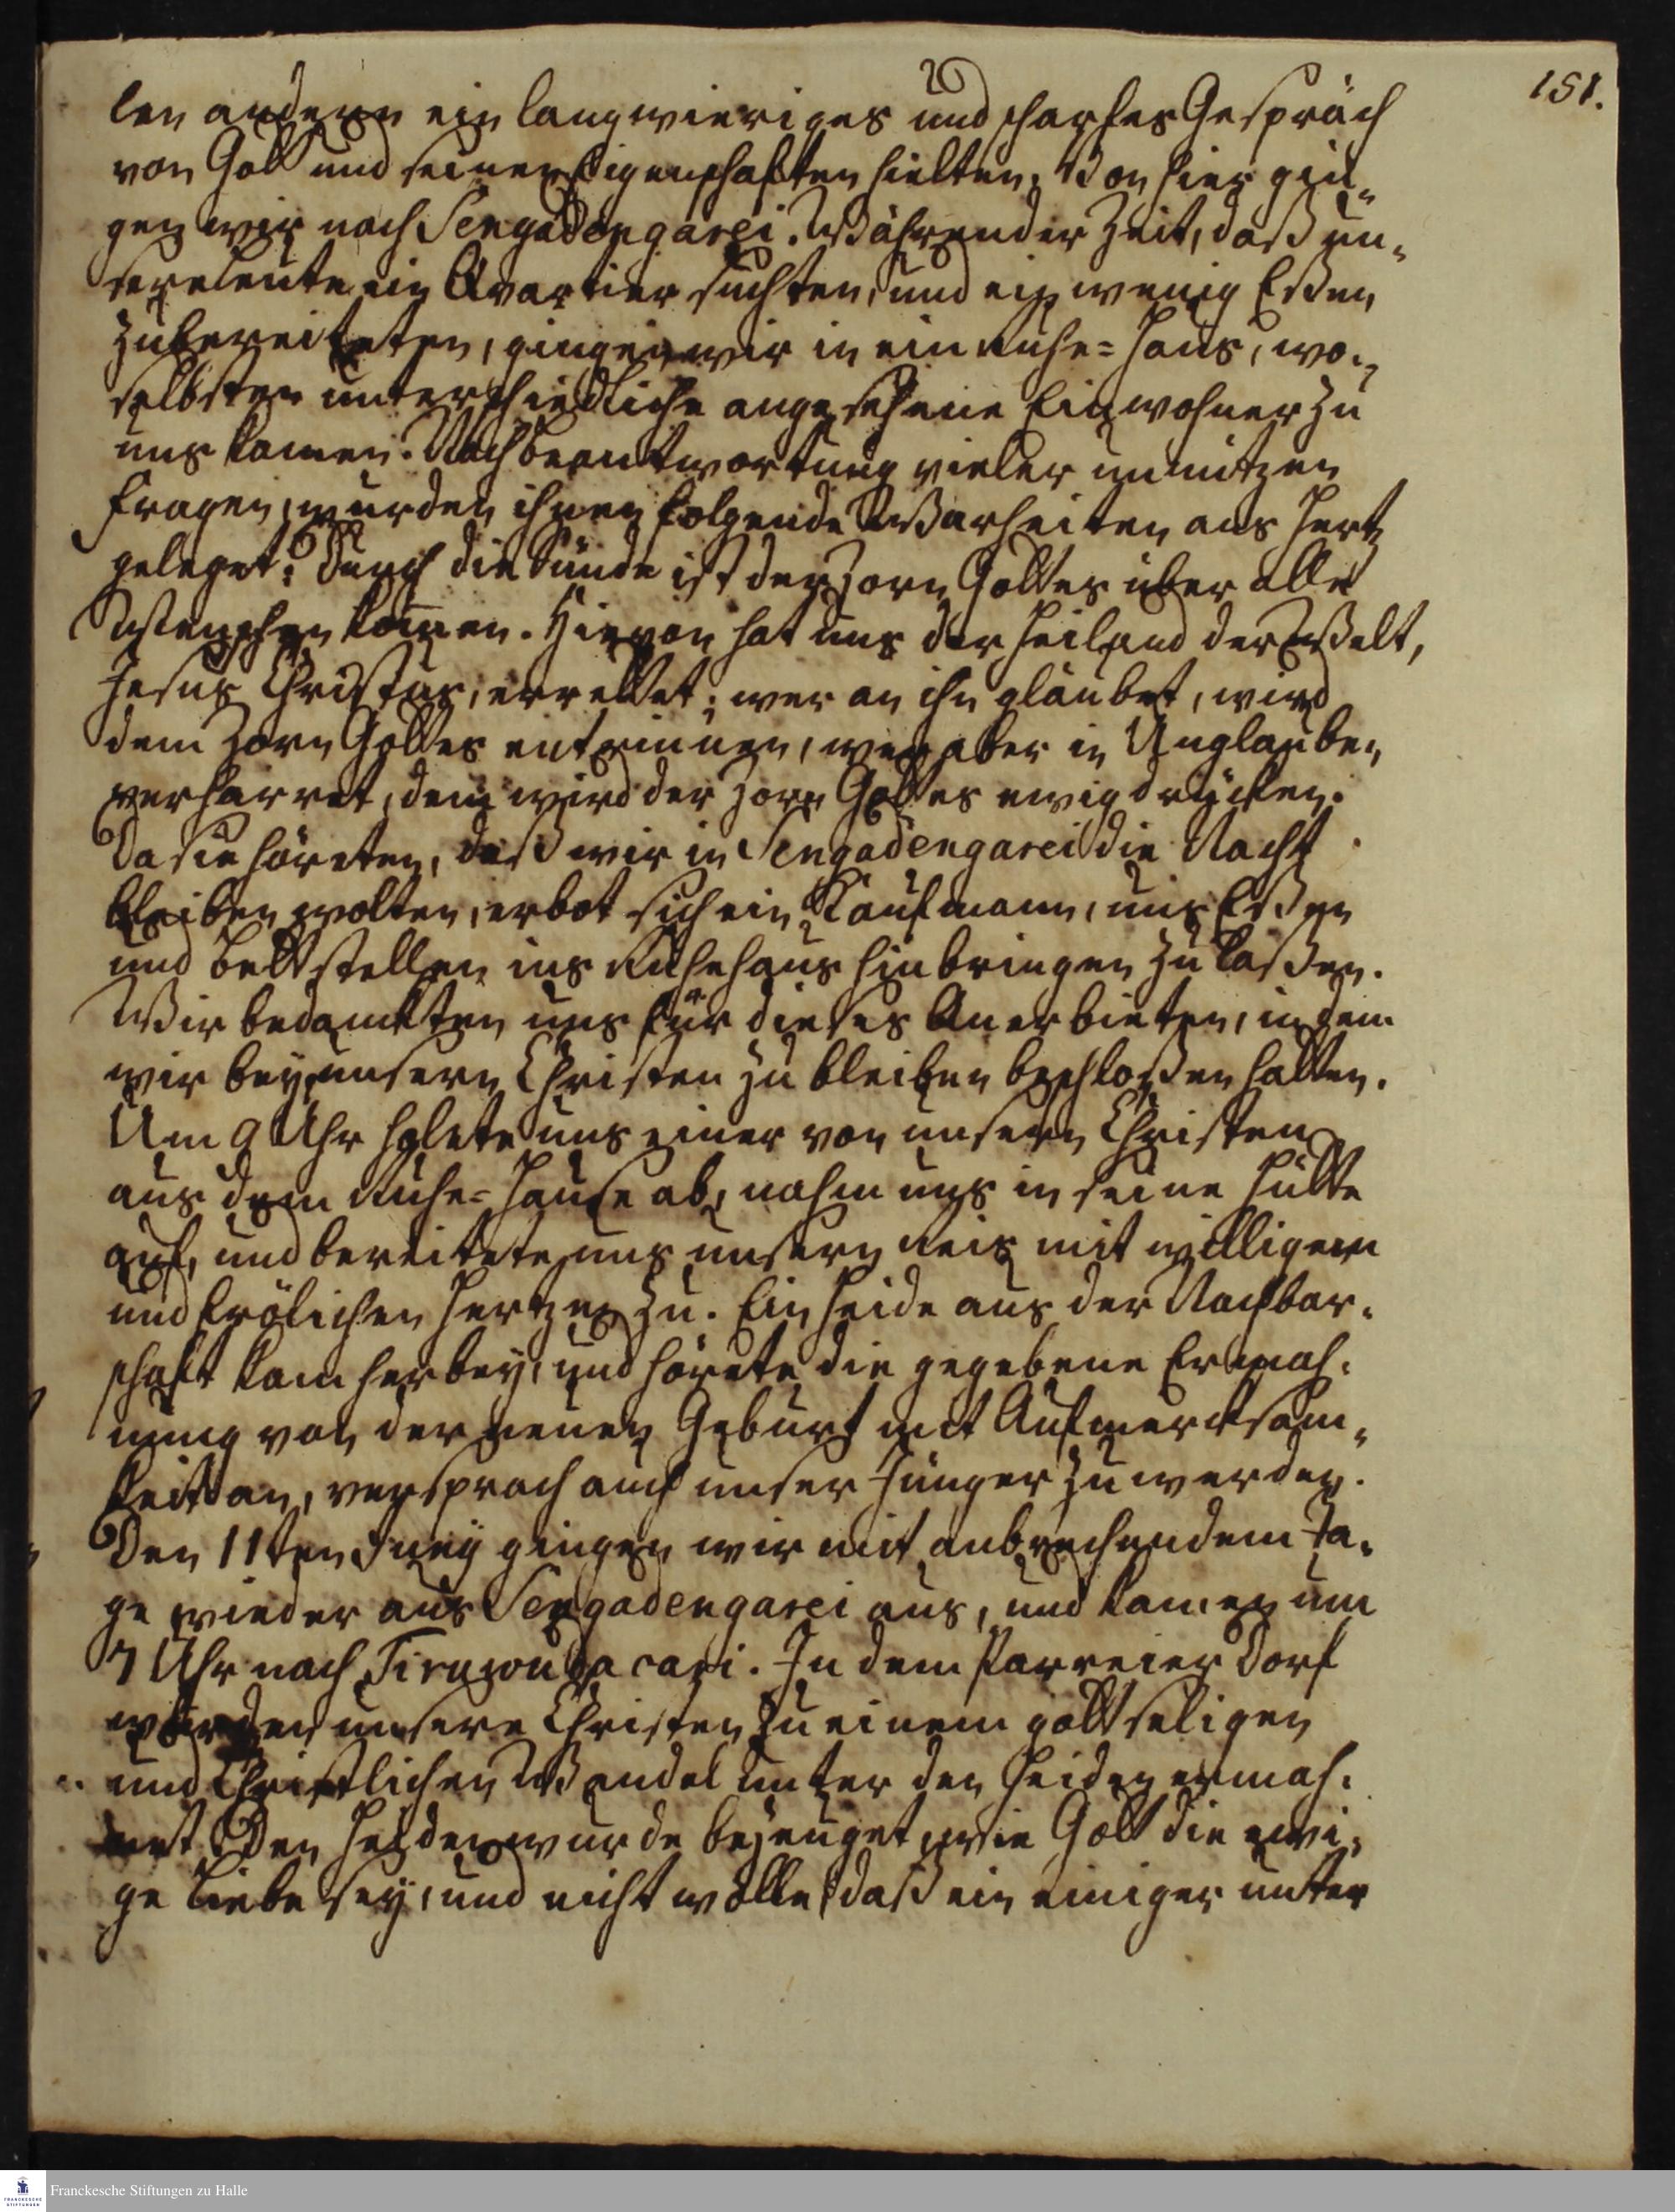 151.
len andern ein langwieriges und scharfes Gespräch
von Gott und seinen Eigenschaften hielten. Von hier gin-
gen wir nach Sengadengarei. Währender Zeit, daß un-
sere Leute ein Qvartier suchten, und ein wenig Eßen
zubereiteten, gingen wir in ein Ruhe=Haus, wo-
selbsten unterschiedliche angesehene Einwohner zu
uns kamen. Nach Beantwortung vieler unnützen
Fragen, wurden ihnen folgende Warheiten ans Hertz
geleget: Durch die Sünde ist der Zorn Gottes über alle
Menschen kom̅en. Hievon hat uns der Heiland der Welt,
Jesus Christus, errettet; wer an ihn gläubet, wird
dem Zorn Gottes entrinnen, wer aber in Unglauben
verharret, den wird der Zorn Gottes ewig drücken.
Da sie höreten, daß wir in Sengadengarei die Nacht
bleiben wolten, erbot sich ein Kaufmann, uns Eßen
und Bettstellen ins Ruhehaus hinbringen zu laßen.
Wir bedanckten uns für dieses Anerbieten, indem
wir bey unsern Christen zu bleiben beschloßen hatten.
Um 9 Uhr holete uns einer von unsern Christen
aus dem Ruhe=Hause ab, nahm uns in seine Hütte
auf, und bereitete uns unsern Reis mit willigem
und frölichen Hertzen zu. Ein Heide aus der Nachbar-
schaft kam herbey, und hörete die gegebene Ermah-
nung von der neuen Geburt mit Aufmercksam-
keit an, versprach auch unser Jünger zu werden.
Den 11ten Juny gingen wir mit anbrechendem Ta-
ge wieder aus Sengadengarei aus, und kamen um
7 Uhr nach Tiruwudacari. In dem Parreier Dorf
wurden unsere Christen zu einem gottseligen
und Christlichen Wandel unter den Heiden ermah-
net. Den Heiden wurde bezeuget, wie Gott die ewi-
ge Liebe sey, und nicht wolle, daß ein einiger unter
Franckesche Stiftungen zu Halle
FRANCKESCHE
STIFTUNGEN